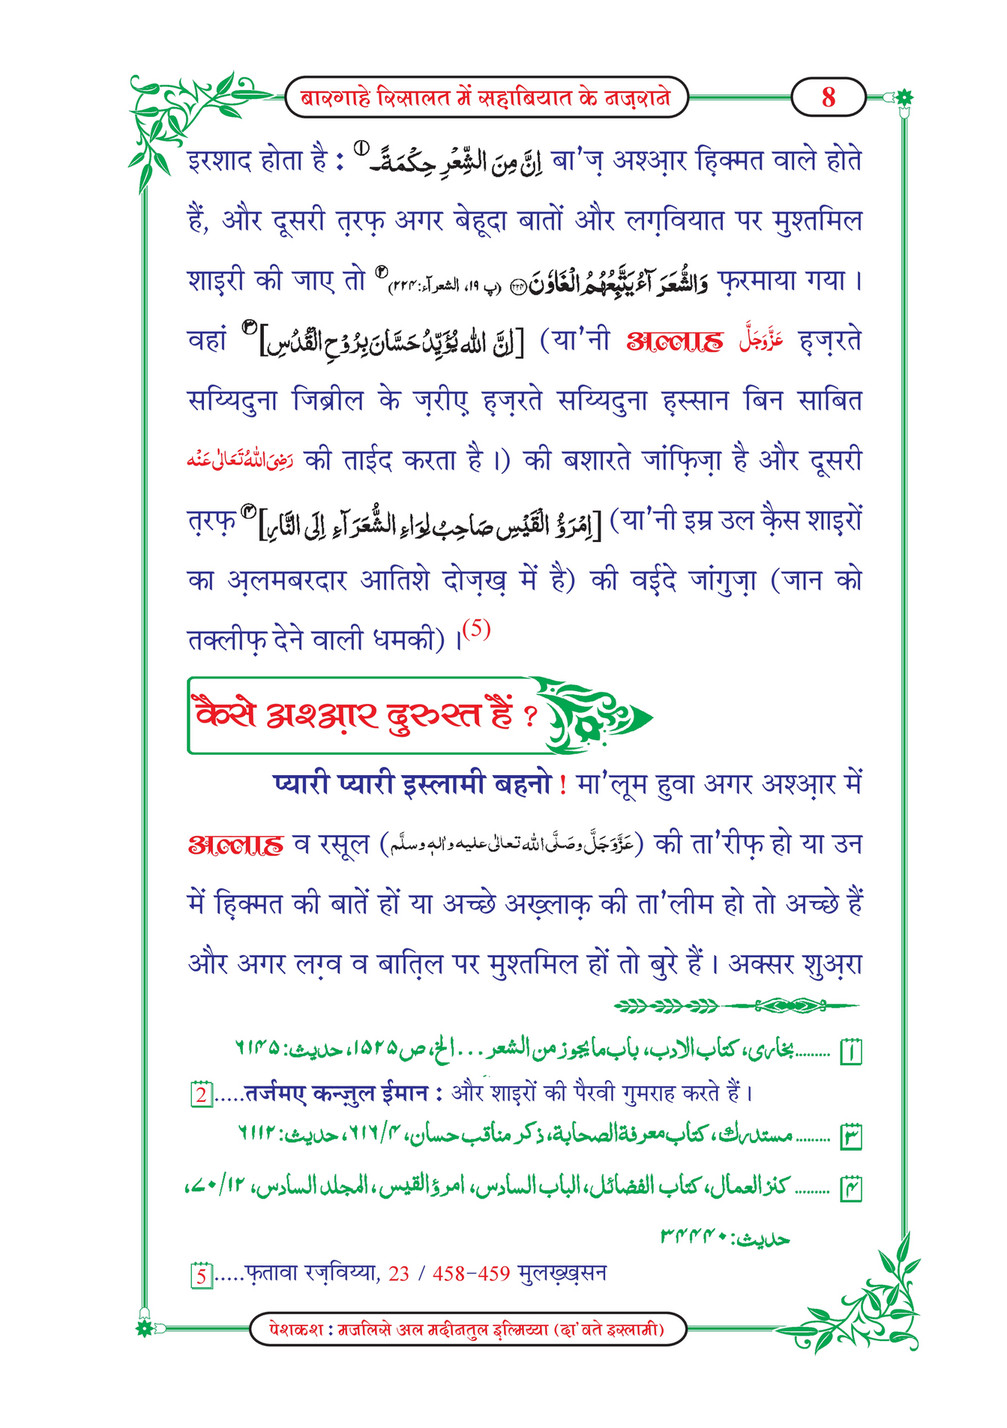 बारगाहे रिसालत में सहाबियात के नज़राने
8
इरशाद होता है : اِنَّ مِنَ الشِّعْرِ حِكْمَةً۔ ① बा'ज़ अश्आ़र ह़िक्मत वाले होते
हैं, और दूसरी त़रफ़ अगर बेहूदा बातों और लग़्वियात पर मुश्तमिल
शाइरी की जाए तो وَالشُّعَرَآءُ یَتَّبِعُهُمُ الْغَاوٗنَ ﴿۲۲۴﴾ (پ ۱۹، الشعرآء:۲۲۴) ② फ़रमाया गया ।
वहां [اِنَّ اللّٰهَ یُؤَیِّدُ حَسَّانَ بِرُوْحِ الْقُدُسِ] ③ (या'नी अल्लाह عَزَّوَجَلَّ ह़ज़रते
सय्यिदुना जिब्रील के ज़रीए ह़ज़रते सय्यिदुना ह़स्सान बिन साबित
رَضِیَ اللّٰهُ تَعَالٰی عَنْه की ताईद करता है ।) की बशारते जांफ़िज़ा है और दूसरी
त़रफ़ [اِمْرَؤُ الْقَیْسِ صَاحِبُ لِوَاءِ الشُّعَرَآءِ اِلَی النَّارِ] ④ (या'नी इम्र उल क़ैस शाइरों
का अ़लमबरदार आतिशे दोज़ख़ में है) की वई़दे जांगुज़ा (जान को
तक्लीफ़ देने वाली धमकी) ।(5)
कैसे अश्आ़र दुरुस्त हैं ?
प्यारी प्यारी इस्लामी बहनो ! मा'लूम हुवा अगर अश्आ़र में
अल्लाह व रसूल (عَزَّوَجَلَّ وصَلَّی اللّٰه تعالٰی علیه واٰلہٖ وسلَّم) की ता'रीफ़ हो या उन
में ह़िक्मत की बातें हों या अच्छे अख़्लाक़ की ता'लीम हो तो अच्छे हैं
और अगर लग़्व व बात़िल पर मुश्तमिल हों तो बुरे हैं । अक्सर शुअ़रा
۱ ......... بخاری، کتاب الادب، باب ما یجوز من الشعر . . . الخ، ص ۱۵۲۵، حدیث: ۶۱۴۵
2 .....तर्जमए कन्ज़ुल ईमान : और शाइरों की पैरवी गुमराह करते हैं ।
۳ ......... مستدرك، کتاب معرفة الصحابة، ذکر مناقب حسان، ۴/۶۱۶، حدیث: ۶۱۱۲
۴ ......... کنز العمال، کتاب الفضائل، الباب السادس، امرؤ القیس، المجلد السادس، ۱۲/۷۰،
حدیث: ۳۴۴۴۰
5 .....फ़तावा रज़विय्या, 23 / 458-459 मुलख़्ख़सन
पेशकश : मजलिसे अल मदीनतुल इ़ल्मिय्या (दा'वते इस्लामी)